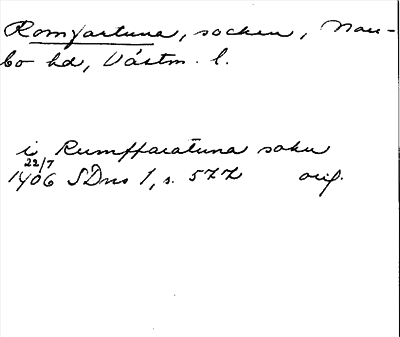 Romfartuna, socken, Nor-
bo hd, Västm. l.
i Rumffaratuna sokn
22/7
1406 SDns 1, s. 577 orig.